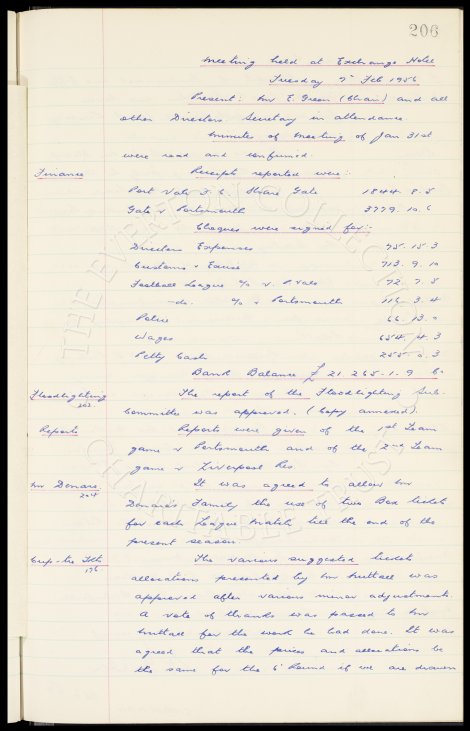 206
Meeting held at Exchange Hotel
Tuesday 7th Feb 1956
Present: Mr E. Green (Chair) and all
other Directors. Secretary in attendance.
Minutes of Meeting of Jan 31st
were read and confirmed.
Finance Receipts reported were:
Port Vale F.C. Share Gate 1844. 8. 5
Gate v Portsmouth 3779. 10. 6
Cheques were signed for:-
Directors Expenses 75. 15. 3
Customs & Excise 713. 9. 10
Football League % v. P. Vale 72. 7. 5
-do- % v Portsmouth 116. 3. 4
Police 66. 13.
Wages 654. 4. 3
Petty Cash 255. 0. 3
Bank Balance £ 21,265. 1. 9
Floodlighting The report of the Floodlighting Sub.
202. Committee was approved. (Copy annexed).
Reports Reports were given of the 1st Team
game v Portsmouth and of the 2nd Team
game v Liverpool Res.
Mr Donars. It was agreed to allow Mr
204 Donars's Family the use of two Box tickets
for each League Match till the end of the
present season.
Cup-tie Tkts The various suggested tickets
176 allocations presented by Mr Nuttall was
approved after various minor adjustments.
A vote of thanks was passed to Mr
Nuttall for the work he had done. It was
agreed that the prices and allocations be
the same for the 6th Round if we are drawn
THE EVERTON COLLECTION
CHARITABLE TRUST